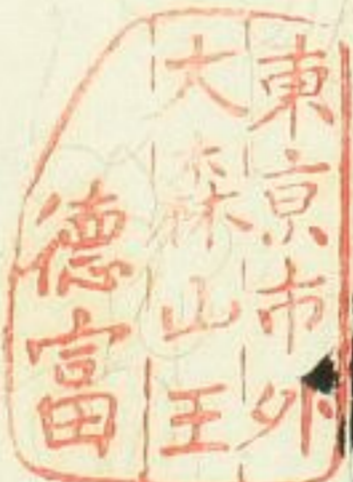 東京市外
大森山王
德富